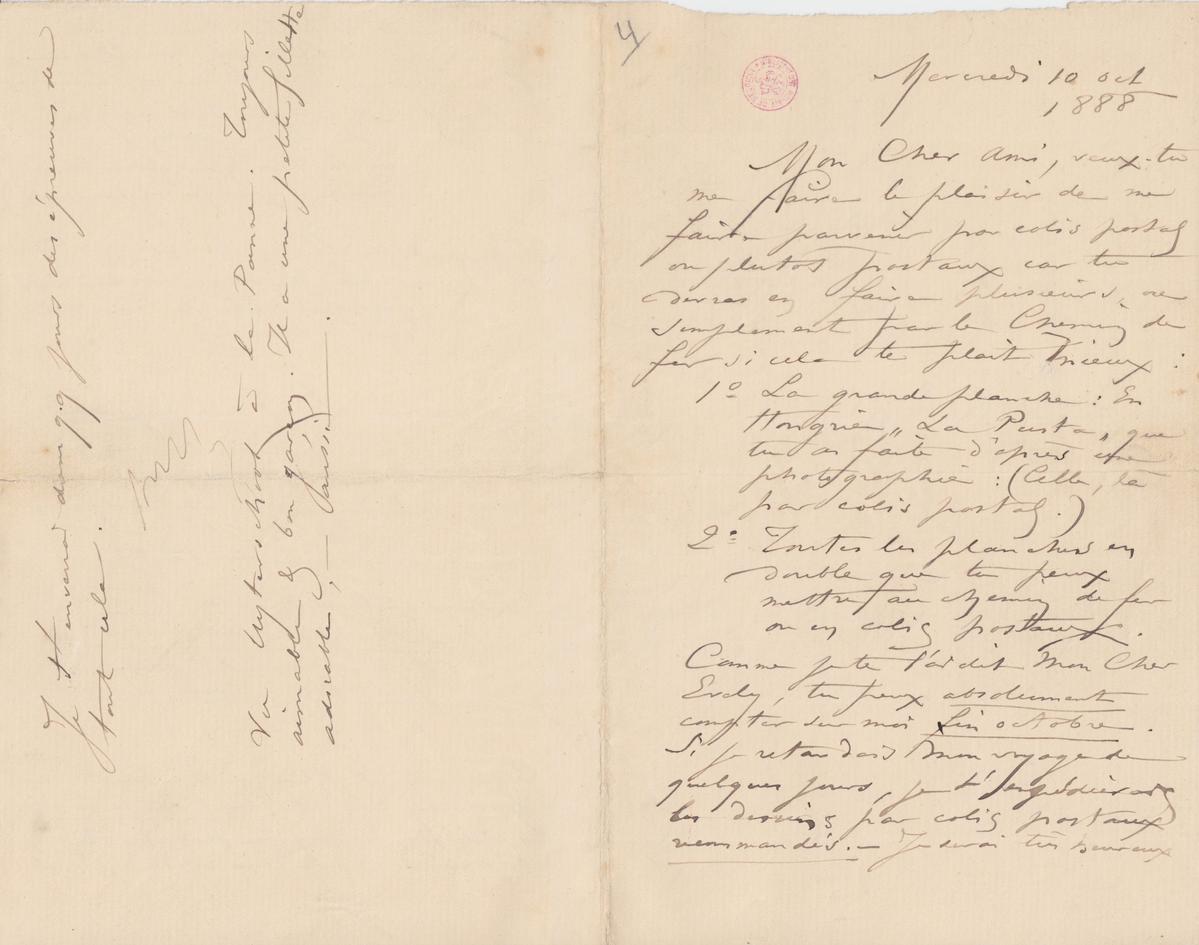 4
Mercredi 10 oct
1888
Mon Cher Ami, veux-tu
me faire le plaisir de me
faire parvenir par colis postal
ou plutot postaux car tu
devras en faire plusieurs, ou
simplement par le Chemin de
fer si cela te plait mieux :
1º La grande planche : En
Hongrie „ La Pusta „ que
tu as faite d'après une
photographie : (Celle, là
par colis postal.)
2º Toutes les planches en
double que tu peux
mettre au chemin de fer
ou en colis postaux.
Comme je te l'ai dit Mon Cher
Evely, tu peux absolument
compter sur moi fin octobre.
Si je retardais mon voyage de
quelques jours, je t'expédierais
les dessins par colis postaux
recommandés. — Je serai très heureux
Je t'enverrai dans q.q jours des épreuves de
tout cela.
Vu Uytterschoot à la Panne. Toujours
aimable & bon garçon. Il a une petite fillette
adorable, — aussi.